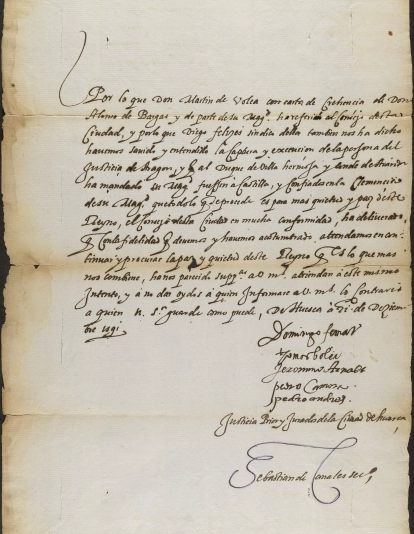 Por lo que Don Martin de Bolea con carta de Creencia de Don
Alonso de Bargas y de parte de su Magd. ha referido al Consejo desta
Ciudad, y por lo que Diego felizes sindico della tambien nos ha dicho
havemos savido y entendido la captura y execucion de la persona del
Justicia de Aragon, y q al Duque de Villahermosa y Conde de Aranda
ha mandado su Magd. fuessen a Castilla, y confiados en la Clemencia
de su Magd. que todo lo q procede es para mas quietud y paz deste
Reyno, el Consejo de la Ciudad en mucha conformidad, ha deliberado
q con la fidelidad q devemos y havemos acostumbrado attendamos en con-
tinuar y procurar la paz y quietud deste Reyno q es lo que mas
nos combiene, ha nos parecido suppcar a V m. attiendan a este mesmo
Intento, y a no dar oydos a quien Informare a V. m. lo contrario
a quien N. Sr. guarde como puede, De Huesca a de Deziem-
bre 1591
Domingo
Thomas bolea
Jeronimo Arnalt
pedro
pedro andres
Justicia Prior y Jurados de la Ciudad de huesca
Sebastian de Canales secro,